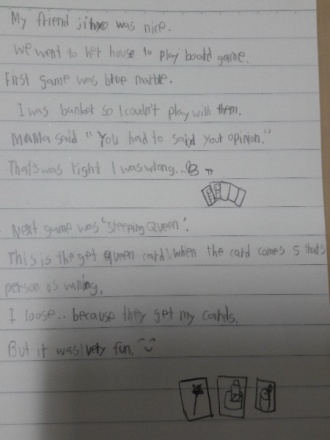 My friend jihyo was nice.
We went to her house to play board game.
First game was blue marble.
I was bankot so I couldn't play with them.
MaMa said "You had to said your opinion."
That's was right I was wrong..
Next game was "sleeping Queen".
This is the get queen card! when the card comes 5 that's
person is wining.
I loose.. because they get my cards.
But it was very fun.